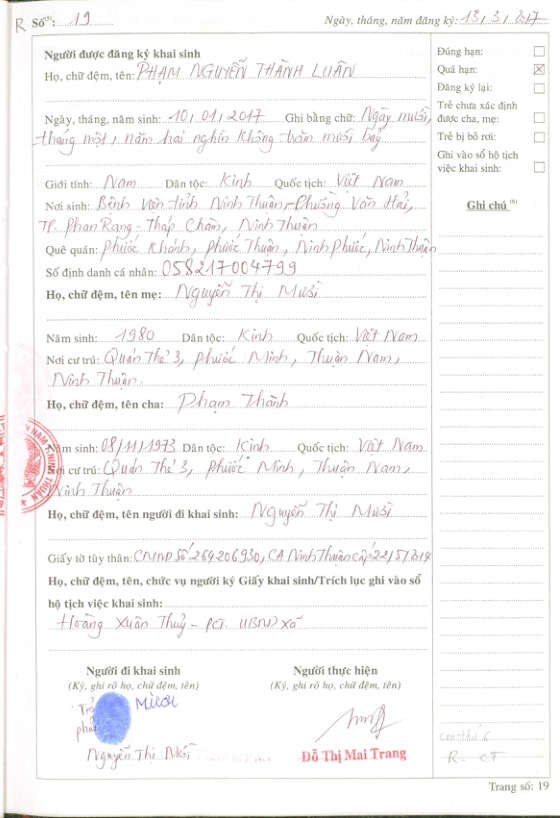 R Số⁽⁵⁾: 19 Ngày, tháng, năm đăng ký: 13, 3, 2017
Người được đăng ký khai sinh
Họ, chữ đệm, tên: PHẠM NGUYỄN THÀNH LUÂN
Ngày, tháng, năm sinh: 10, 01, 2017 Ghi bằng chữ: Ngày mười,
tháng một, năm hai nghìn không trăm mười bảy
Giới tính: Nam Dân tộc: Kinh Quốc tịch: Việt Nam
Nơi sinh: Bệnh viện tỉnh Ninh Thuận, Phường Văn Hải,
TP. Phan Rang - Tháp Chàm, Ninh Thuận
Quê quán: Phước Khánh, Phước Thuận, Ninh Phước, Ninh Thuận
Số định danh cá nhân: 058217004799
Họ, chữ đệm, tên mẹ: Nguyễn Thị Mười
Năm sinh: 1980 Dân tộc: Kinh Quốc tịch: Việt Nam
Nơi cư trú: Quán Thẻ 3, Phước Minh, Thuận Nam,
Ninh Thuận.
Họ, chữ đệm, tên cha: Phạm Thành
Năm sinh: 08/11/1973 Dân tộc: Kinh Quốc tịch: Việt Nam
Nơi cư trú: Quán Thẻ 3, Phước Minh, Thuận Nam,
Ninh Thuận
Họ, chữ đệm, tên người đi khai sinh: Nguyễn Thị Mười
Giấy tờ tùy thân: CMND Số 264206930, CA Ninh Thuận cấp 22/5/2014
Họ, chữ đệm, tên, chức vụ người ký Giấy khai sinh/Trích lục ghi vào sổ
hộ tịch việc khai sinh:
Hoàng Xuân Thuỷ - PCT. UBND xã
Người đi khai sinh
(Ký, ghi rõ họ, chữ đệm, tên)
Trỏ Mười
phải
Nguyễn Thị Mười
Người thực hiện
(Ký, ghi rõ họ, chữ đệm, tên)
Đỗ Thị Mai Trang
Đúng hạn:
Quá hạn: ☒
Đăng ký lại:
Trẻ chưa xác định
được cha, mẹ:
Trẻ bị bỏ rơi:
Ghi vào sổ hộ tịch
việc khai sinh:
Ghi chú ⁽⁶⁾
Con thứ 6
R - CT
Trang số: 19